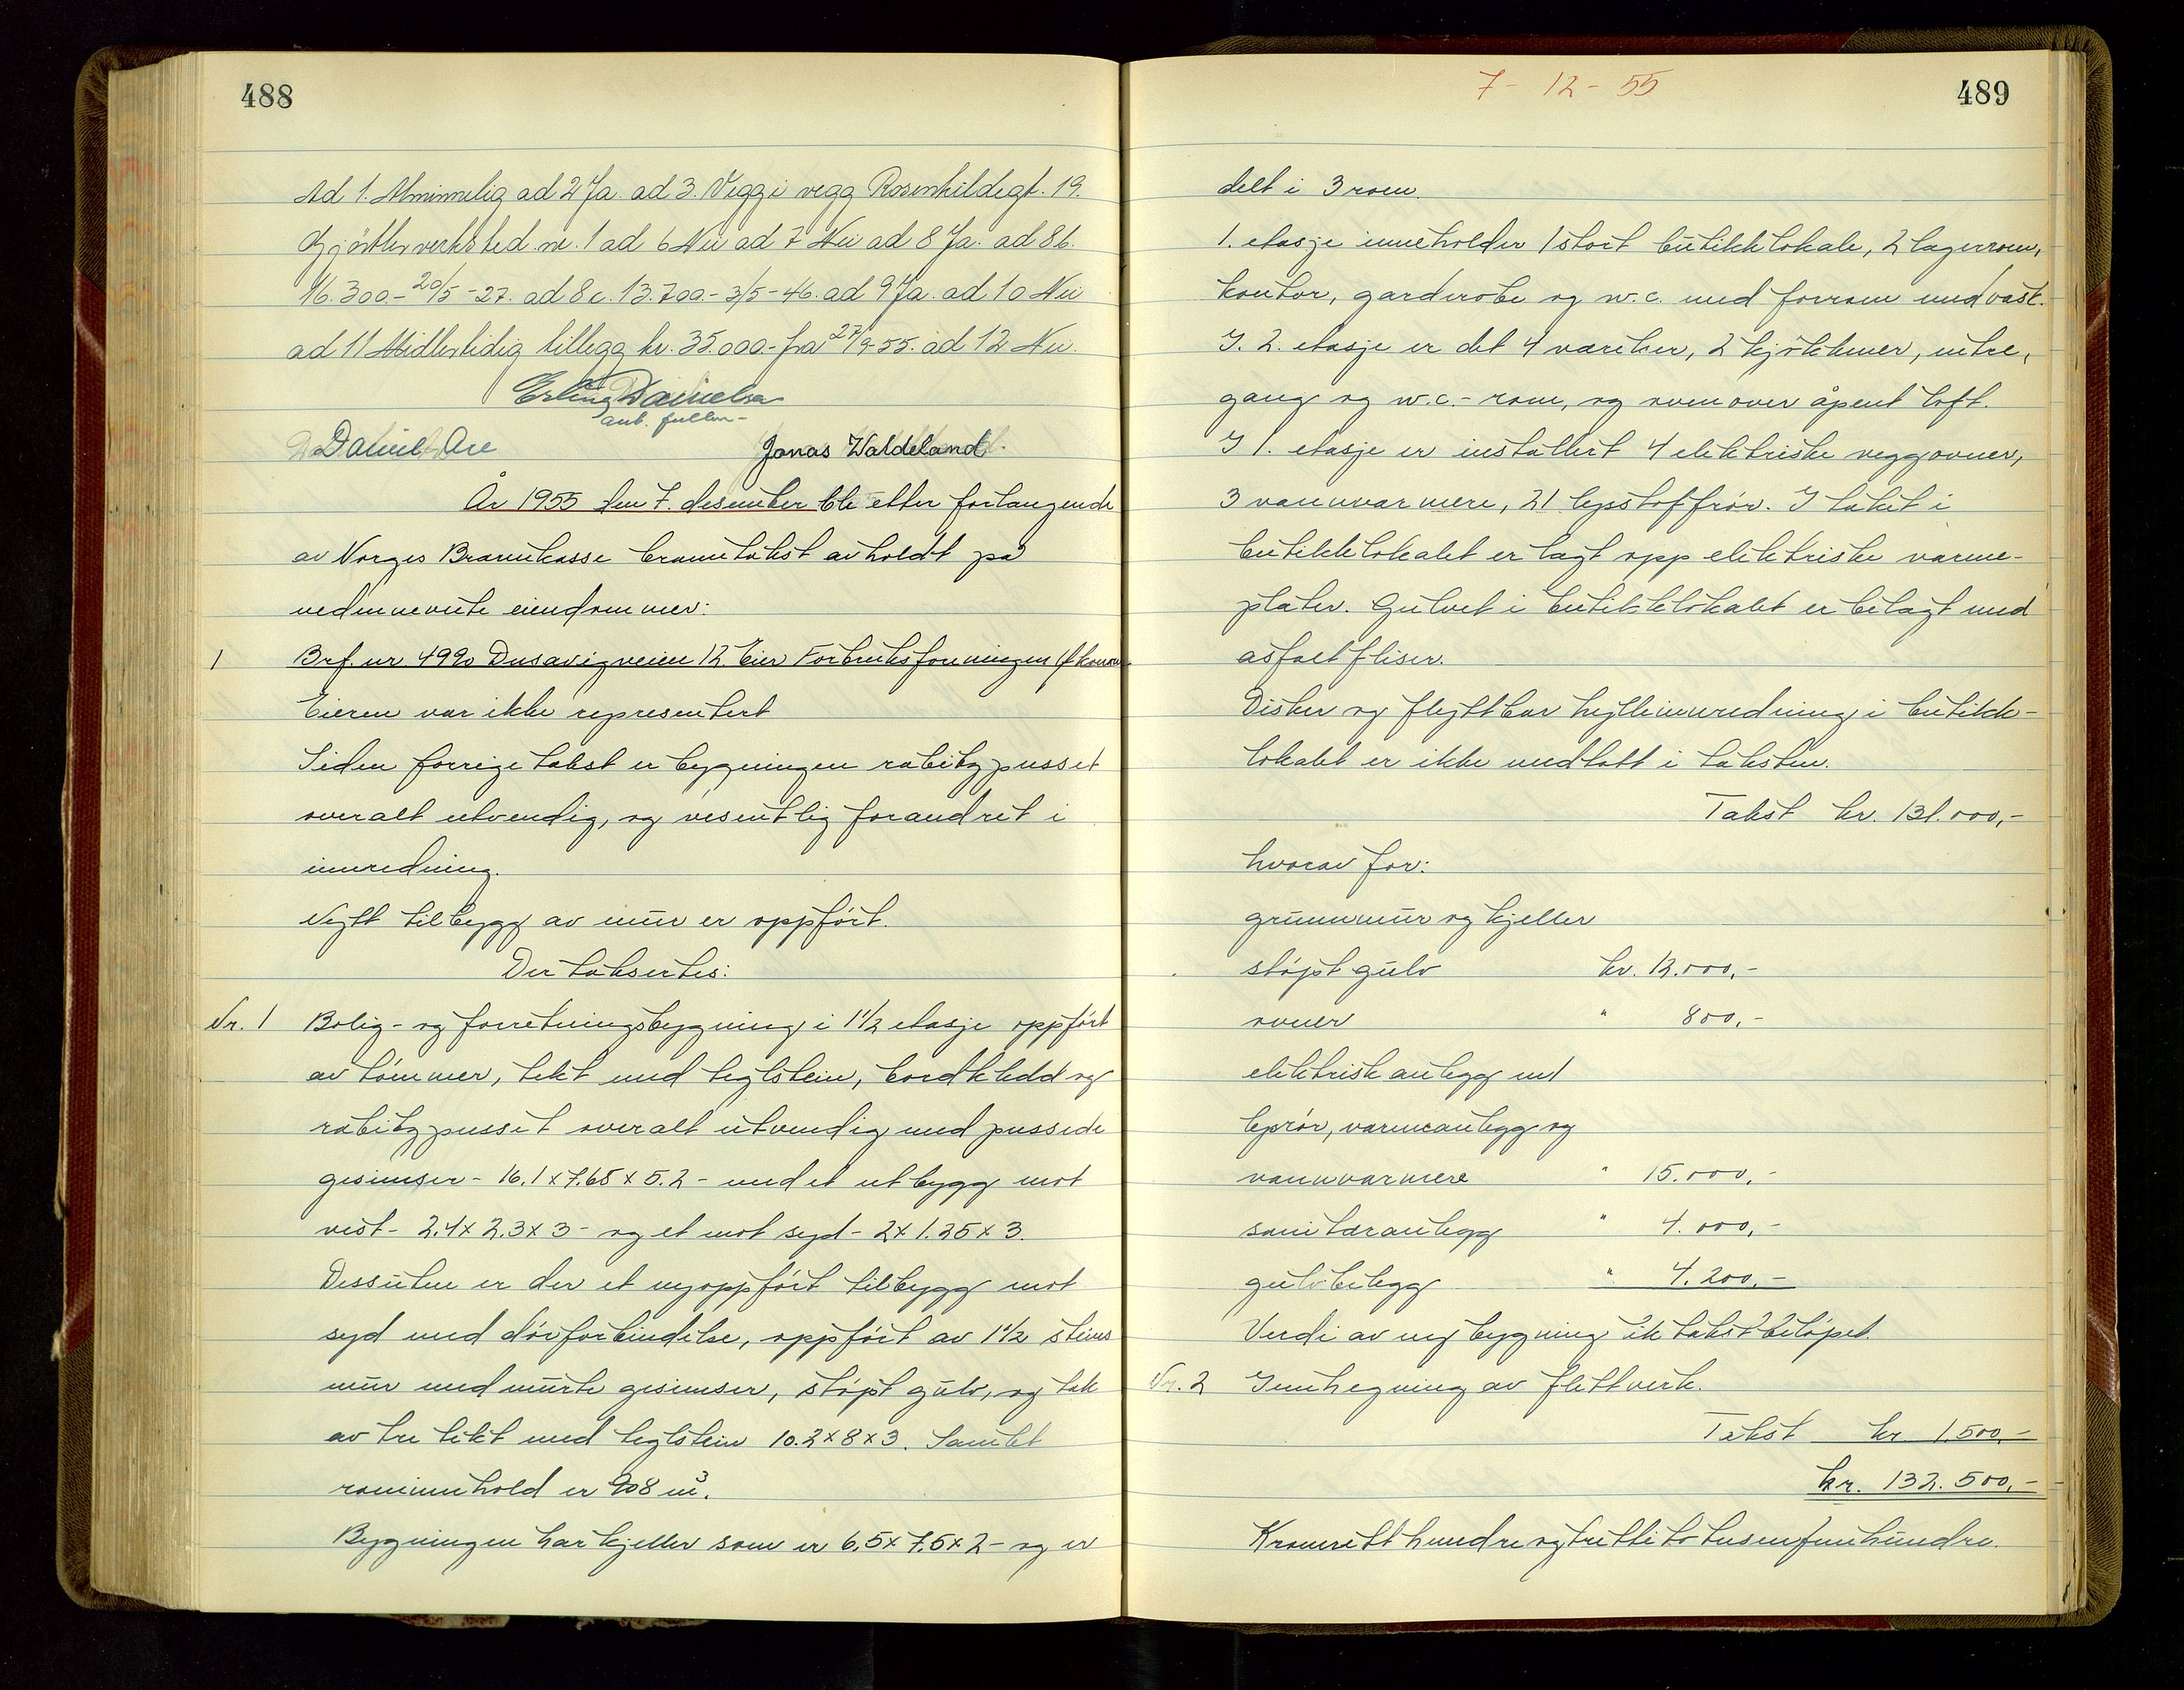 488
Ad 1. Alminnelig ad 2 Ja. ad 3. Vegg i vegg Rosenkildegt. 19.
Gjørtlerverksted nr. 1 ad 6 Nei ad 7 Nei ad 8 Ja. ad 8b.
16.300.- 20/5-27. ad 8c. 13.700.- 3/5-46. ad 9 Ja. ad 10 Nei
ad 11 Midlertidig tillegg kr. 35.000.- fra 27/9-55. ad 12 Nei.
Erling Danielsen
aut. fullm-
Daniel Are
Jonas Waldeland.
År 1955 den 7. desember ble etter forlangende
av Norges Brannkasse branntakst avholdt på
nedennevnte eiendommer:
1 Brf. nr 4990 Dusavigveien 12 Eier Forbruksforeningen Økonom
Eieren var ikke representert
Siden forrige takst er bygningen rabitzpusset
overalt utvendig, og vesentlig forandret i
innredning.
Nytt tilbygg av mur er oppført.
Der taksertes:
Nr. 1 Bolig- og forretningsbygning i 1 1/2 etasje oppført
av tømmer, tekt med teglstein, bordkledd og
rabitzpusset overalt utvendig med pussede
gesimser - 16.1 x 7.65 x 5.2 - med et utbygg mot
vest - 2.4 x 2.3 x 3 - og et mot syd - 2 x 1.25 x 3.
Dessuten er der et nyoppført tilbygg mot
syd med dørforbindelse, oppført av 1 1/2 steins
mur med murte gesimser, støpt gulv, og tak
av tre tekt med teglstein 10.2 x 8 x 3. Samlet
rominnhold er 908 m³.
Bygningen har kjeller som er 6.5 x 7.5 x 2 - og er
7 - 12 - 55
489
delt i 3 rom.
1. etasje inneholder 1 stort butikklokale, 2 lagerrom,
kontor, garderobe og w.c. med forrom med vask.
I. 2. etasje er det 4 værelser, 2 kjøkkener, entre,
gang og w.c.- rom, og ovenover åpent loft.
I 1. etasje er installert 4 elektriske veggovner,
3 vannvarmere, 21 lysstoffrør. I taket i
butikklokalet er lagt opp elektriske varme-
plater. Gulvet i butikklokalet er belagt med
asfaltfliser.
Disker og flyttbar hylleinnredning i butikk-
lokalet er ikke medtatt i taksten.
Takst kr. 131.000,-
hvorav for:
grunnmur og kjeller
støpt gulv kr. 12.000,-
ovner " 800,-
elektrisk anlegg med
lysrør, varmeanlegg og
vannvarmere " 15.000,-
sanitæranlegg " 4.000,-
gulvbelegg " 4.200,-
Verdi av ny bygning lik takstbeløpet.
Nr. 2 Innhegning av flettverk.
Takst kr 1.500,-
kr. 132.500,-
Kroner ett hundre og tretti to tusen fem hundre.